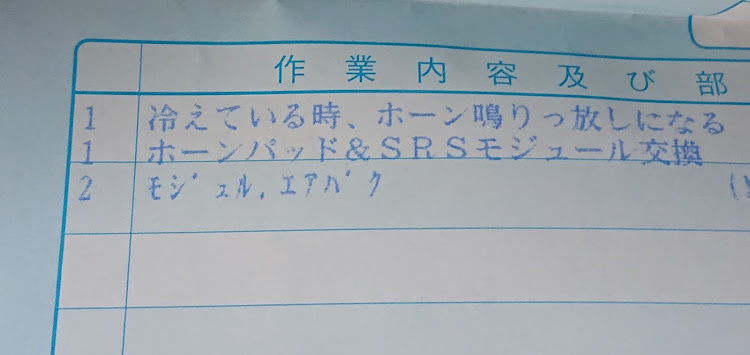 作業内容及び部
1 冷えている時、ホーン鳴りっ放しになる
1 ホーンパッド&SRSモジュール交換
2 モジュル,エアバク (